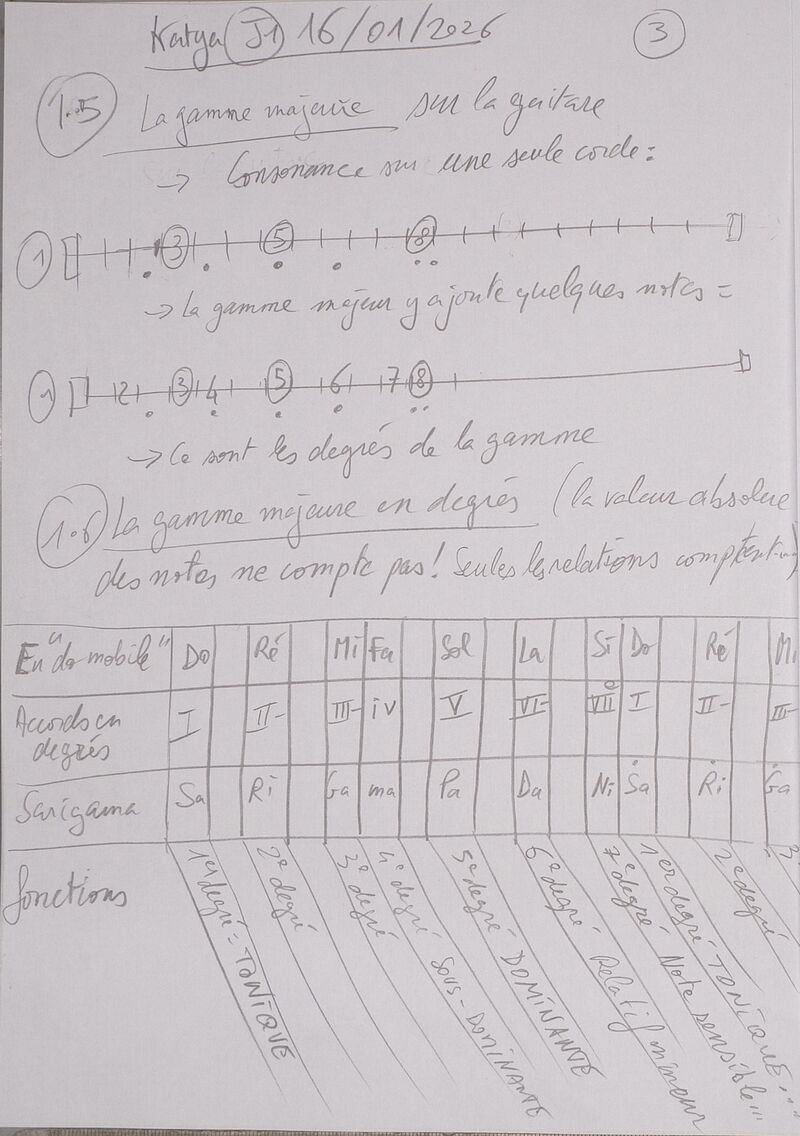 Katya J1 16/01/2026
3
1.5 La gamme majeure sur la guitare
→ Consonance sur une seule corde :
1 3 5 8
→ La gamme majeur y ajoute quelques notes =
1 2 3 4 5 6 7 8
→ Ce sont les degrés de la gamme
1.6 La gamme majeure en degrés (la valeur absolue
des notes ne compte pas! Seules les relations comptent...)
En "do mobile" Do Ré Mi Fa Sol La Si Do Ré Mi
Accords en degrés I II- III- iv V VI- VII° I II- III-
Sarigama Sa Ri Ga ma Pa Da Ni Ṡa Ṙi Ġa
fonctions
1er degré = TONIQUE
2e degré
3e degré
4e degré SOUS-DOMINANTE
5e degré DOMINANTE
6e degré Relatif mineur
7e degré Note sensible...
1er degré TONIQUE...
2e degré
3e